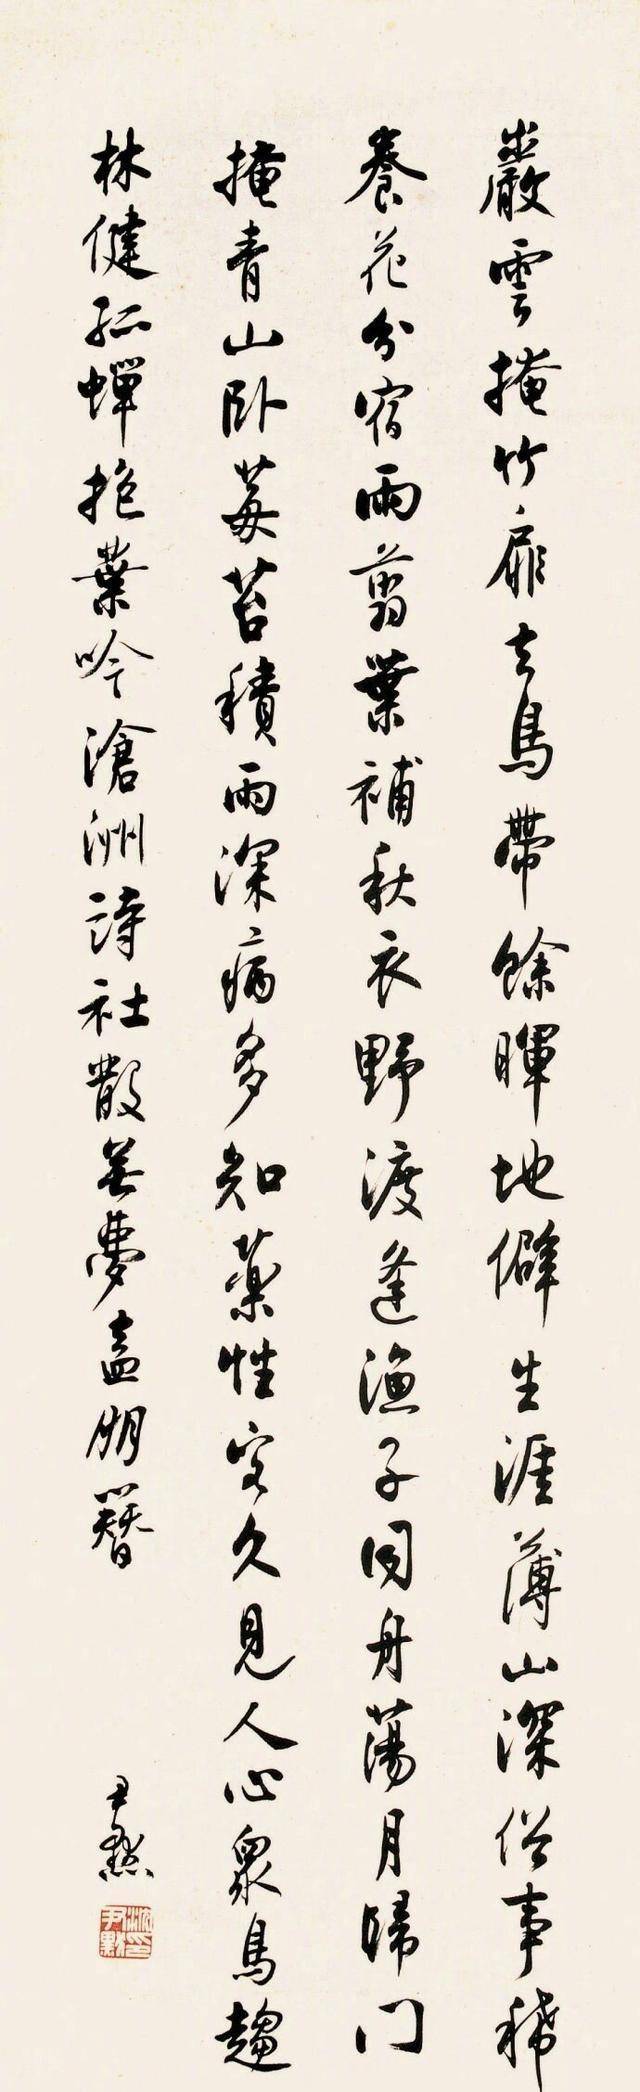 巖雲掩竹扉去鳥帶餘暉地僻生涯薄山深俗事稀
養花分宿雨翦葉補秋衣野渡逢漁子同舟蕩月歸門
掩青山卧莓苔積雨深病多知藥性客久見人心眾鳥趨
林健孤蟬抱葉吟滄洲詩社散無夢盍朋簪
尹默
沈尹默印